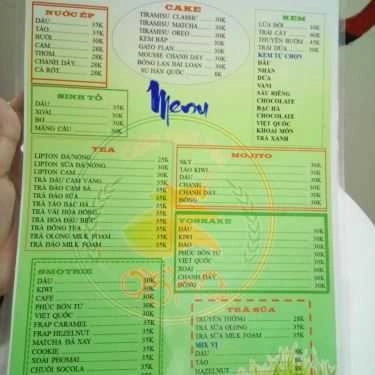 NƯỚC ÉP
DÂU 35K
TÁO 35K
BƯỞI 35K
CAM 30K
THƠM 28K
CHANH DÂY 28K
CÀ RỐT 28K
CAKE
TIRAMISU CLASSIC 30K
TIRAMISU MATCHA 30K
TIRAMISU OREO 30K
KEM BẮP 30K
GATO FLAN 30K
MOUSSE CHANH DÂY 30K
BÔNG LAN ĐÀI LOAN 30K
SU HÀN QUỐC 6K
KEM
LỬA ĐỎ 30K
TRÁI CÂY 60K
THUYỀN BƯỒM 45K
TRÁI DỪA 30K
KEM TỰ CHỌN
DÂU
NHÃN
DỪA
VANI
SẦU RIÊNG
CHOCOLATE
BẠC HÀ
CHOCOLATE
VIỆT QUỐC
KHOAI MÔN
TRÀ XANH
Menu
SINH TỐ
DÂU 35K
XOÀI 35K
BƠ 35K
MÃNG CẦU 35K
TEA
LIPTON ĐÁ/NÓNG 25K
LIPTON SỮA ĐÁ/NÓNG 30K
LIPTON CAM 30K
TRÀ DÂU CAM VÀNG 35K
TRÀ ĐÀO CAM SẢ 35K
TRÀ ĐÀO SỮA 35K
TRÀ TÁO BẠC HÀ 35K
TRÀ VẢI HOA HỒNG 35K
TRÀ HOA ĐẬU BIẾC 35K
TRÀ ĐÔNG TEA 35K
TRÀ OLONG MILK FOAM 35K
TRÀ ĐÀO MILK FOAM 35K
MOJITO
SKY 30K
TÁO KIWI 30K
DÂU 30K
CHANH 30K
CHANH DÂY 30K
HỒNG 30K
DÂU 30K
KIWI 30K
ĐÀO 30K
PHÚC BỒN TỬ 30K
VIỆT QUỐC 30K
XOÀI 30K
CHANH DÂY 30K
HỒNG 30K
DÂU 30K
KIWI 30K
CAFE 30K
PHÚC BỒN TỬ 30K
VIỆT QUỐC 30K
FRAP CARAMEL 35K
FRAP HEZELNUT 35K
MATCHA ĐÁ XAY 35K
COOKIE 35K
XOÀI PHOMAI 35K
CHUỐI SOCOLA 35K
TRÀ SỮA
TRUYỀN THỐNG 28K
TRÀ SỮA OLONG 35K
TRÀ SỮA MILK FOAM 35K
MIX VỊ
DÂU
TÁO
HAZELNUT